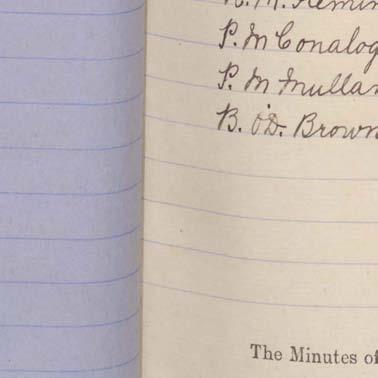 P. McConalog
P. McMulla
B. O'D. Brown
The Minutes of